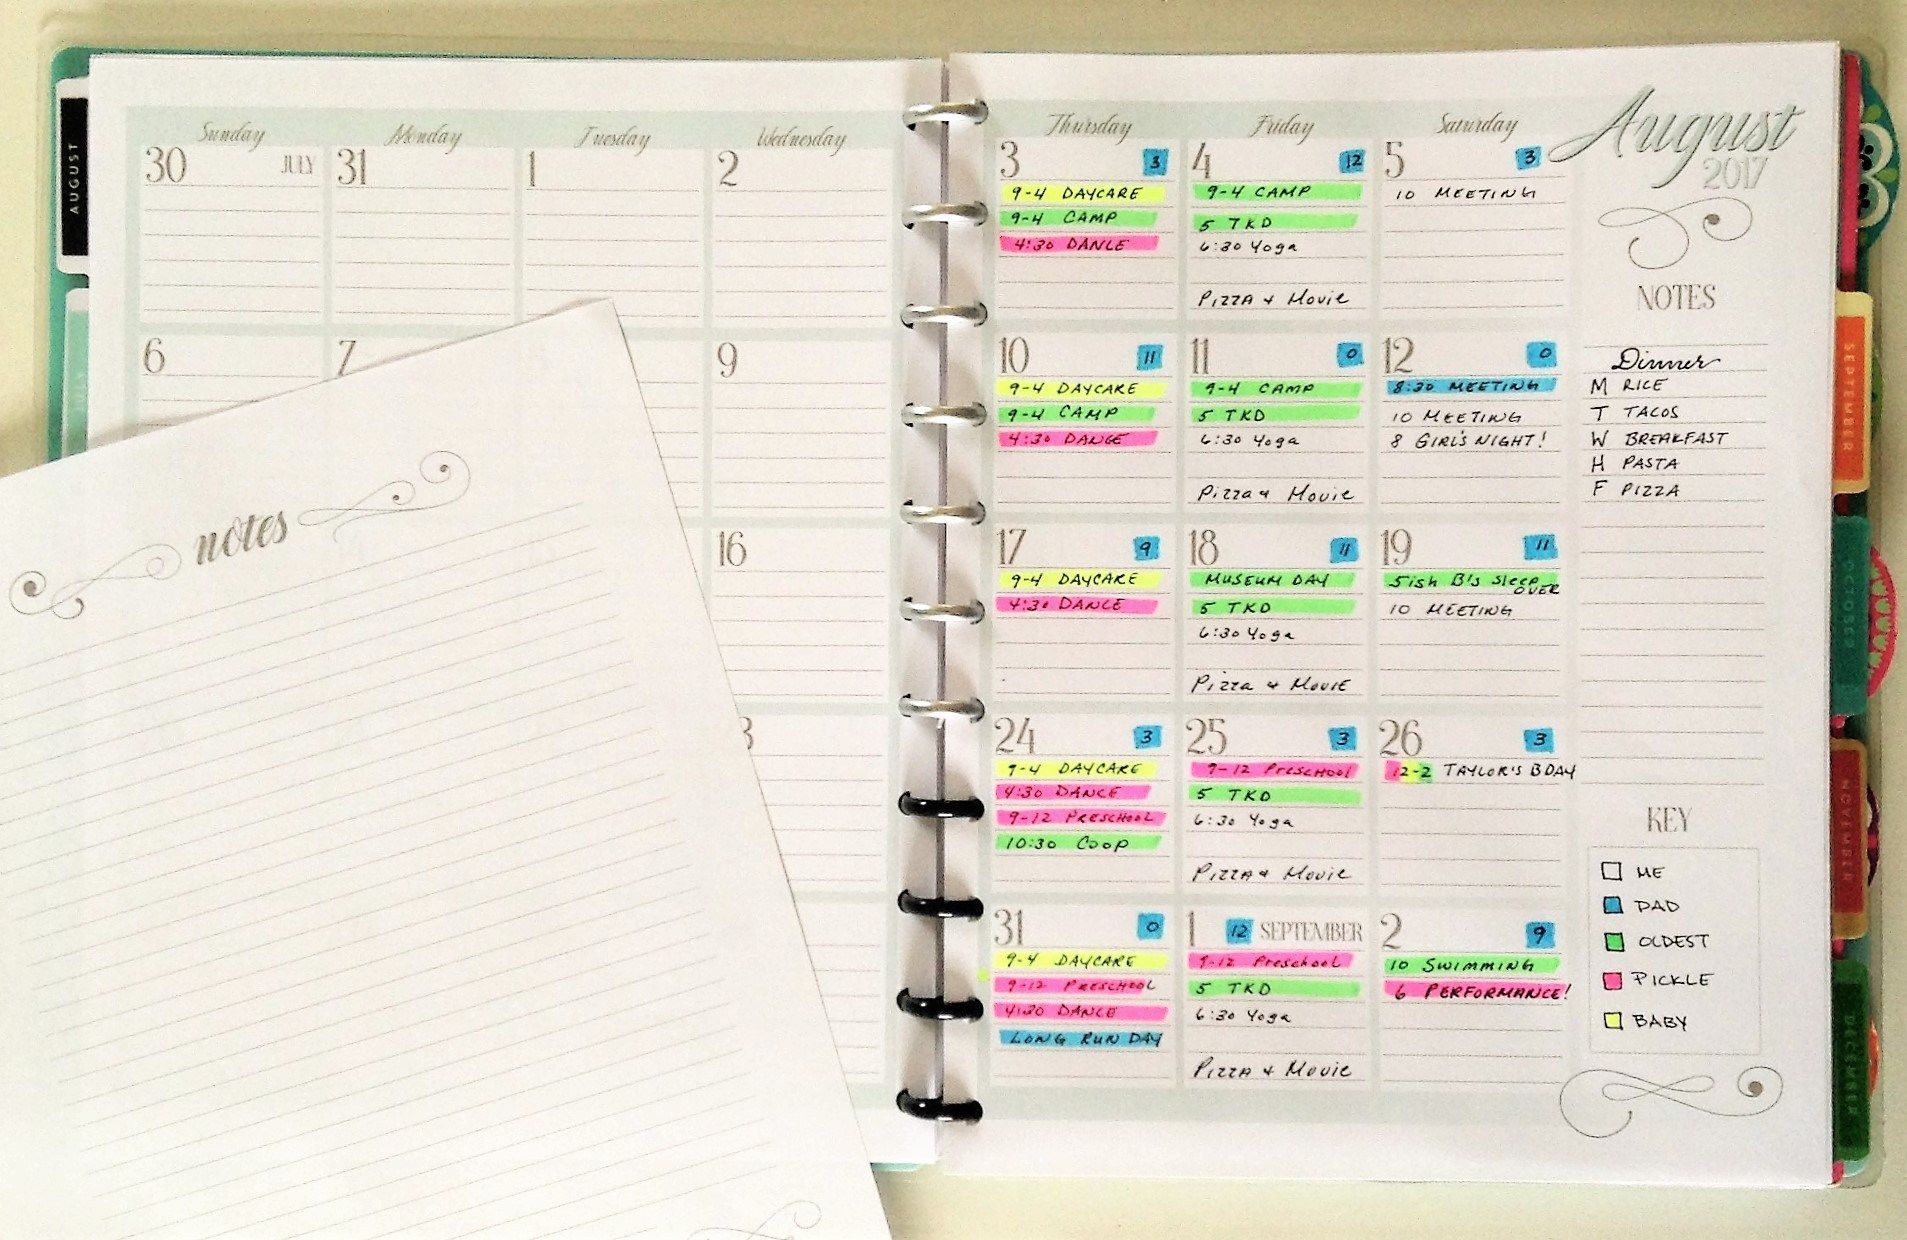 AUGUST
Sunday Monday Tuesday Wednesday
30 JULY 31 1 2
6 7 9
16
notes
Thursday Friday Saturday
August
2017
3 3
9-4 DAYCARE
9-4 CAMP
4:30 DANCE
4 12
9-4 CAMP
5 TKD
6:30 Yoga
PIZZA + Movie
5 3
10 MEETING
10 11
9-4 DAYCARE
9-4 CAMP
4:30 DANCE
11 0
9-4 CAMP
5 TKD
6:30 Yoga
Pizza + Movie
12 0
8:30 MEETING
10 MEETING
8 GIRL'S NIGHT!
17 9
9-4 DAYCARE
4:30 DANCE
18 11
MUSEUM DAY
5 TKD
6:30 Yoga
Pizza + MOVIE
19 11
5ish B's Sleep
OVER
10 MEETING
24 3
9-4 DAYCARE
4:30 DANCE
9-12 PRESCHOOL
10:30 COOP
25 3
9-12 PRESCHOOL
5 TKD
6:30 Yoga
PIZZA + Movie
26 3
12-2 TAYLOR'S BDAY
31 0
9-4 DAYCARE
9-12 PRESCHOOL
4:30 DANCE
LONG RUN DAY
1 12 SEPTEMBER
9-12 Preschool
5 TKD
6:30 Yoga
PIZZA + Movie
2 9
10 SWIMMING
6 PERFORMANCE!
NOTES
Dinner
M RICE
T TACOS
W BREAKFAST
H PASTA
F PIZZA
KEY
ME
DAD
OLDEST
PICKLE
BABY
SEPTEMBER
OCTOBER
NOVEMBER
DECEMBER